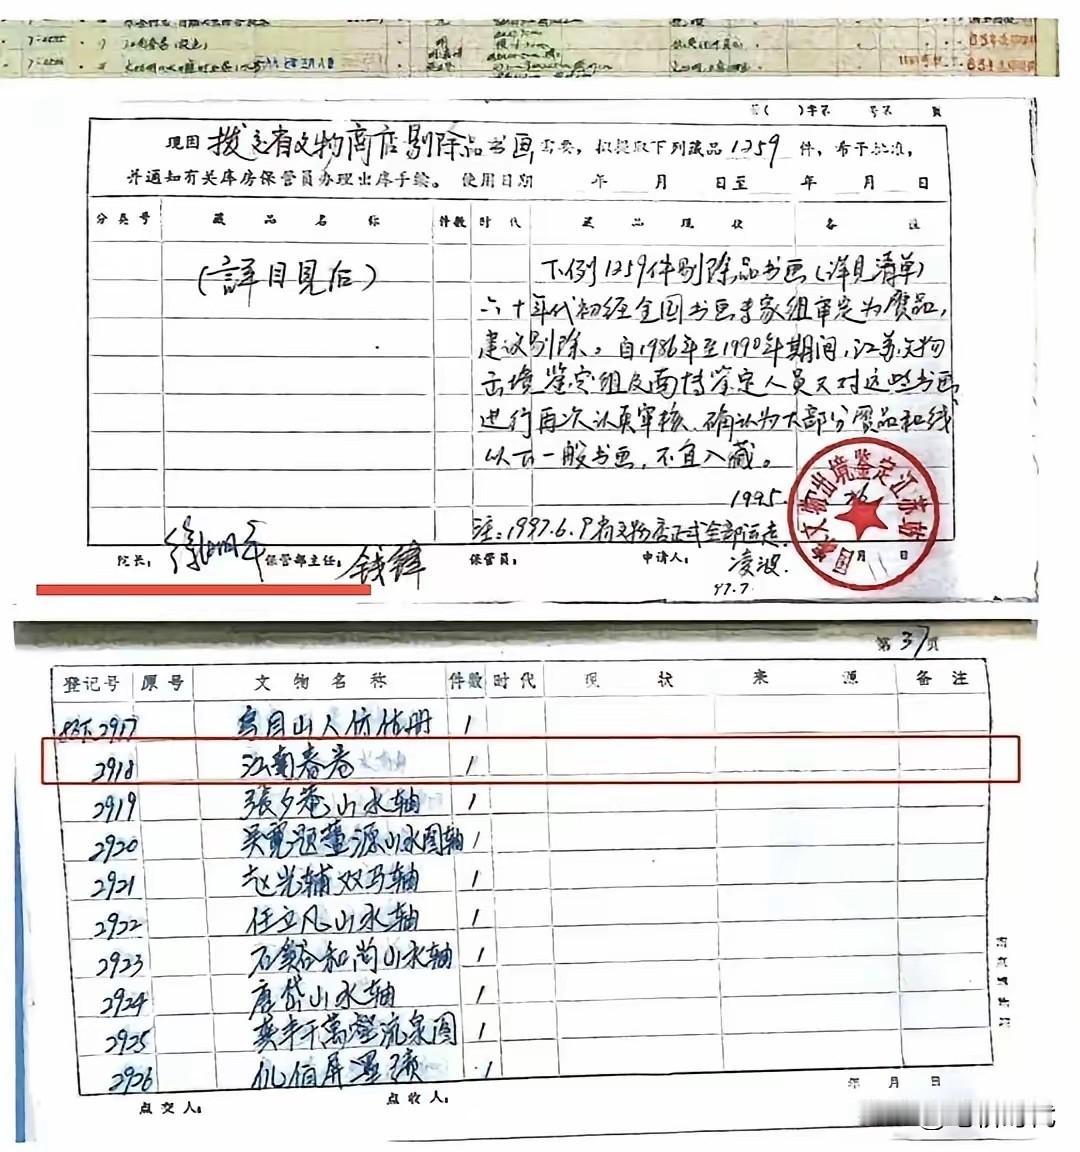 现因拨交省文物商店剔除品书画需要，拟提取下列藏品1259件，希予批准，
并通知有关库房保管员办理出库手续。使用日期 年 月 日至 年 月 日
分类号 藏品名称 件数 时代 藏品现状 备注
(詳目見后)
下列1259件剔除品书画(详见清单)
六十年代初经全国书画专家组审定为赝品，
建议剔除。自1986年至1990年期间，江苏文物
出境鉴定组及南博鉴定人员又对这些书画
进行再次认真审核，确认为大部分赝品和线
以下一般书画，不宜入藏。
1995.
注:1997.6.9省文物店正式全部运走.
院长: 徐湖平 保管部主任: 钱锋 保管员: 申请人: 凌波.
97.7.
文物出境鉴定江苏站
第37页
登记号 原号 文物名称 件数 时代 现状 来源 备注
2917 烏目山人仿古册 1
2918 江南春卷 1
2919 張夕菴山水轴 1
2920 吴寬题董源山水图轴 1
2921 赵光辅双马轴 1
2922 任立凡山水轴 1
2923 石溪和尚山水轴 1
2924 唐岱山水轴 1
2925 龚半千萬壑流泉图 1
2926 1
年 月 日
点交人: 点收人: